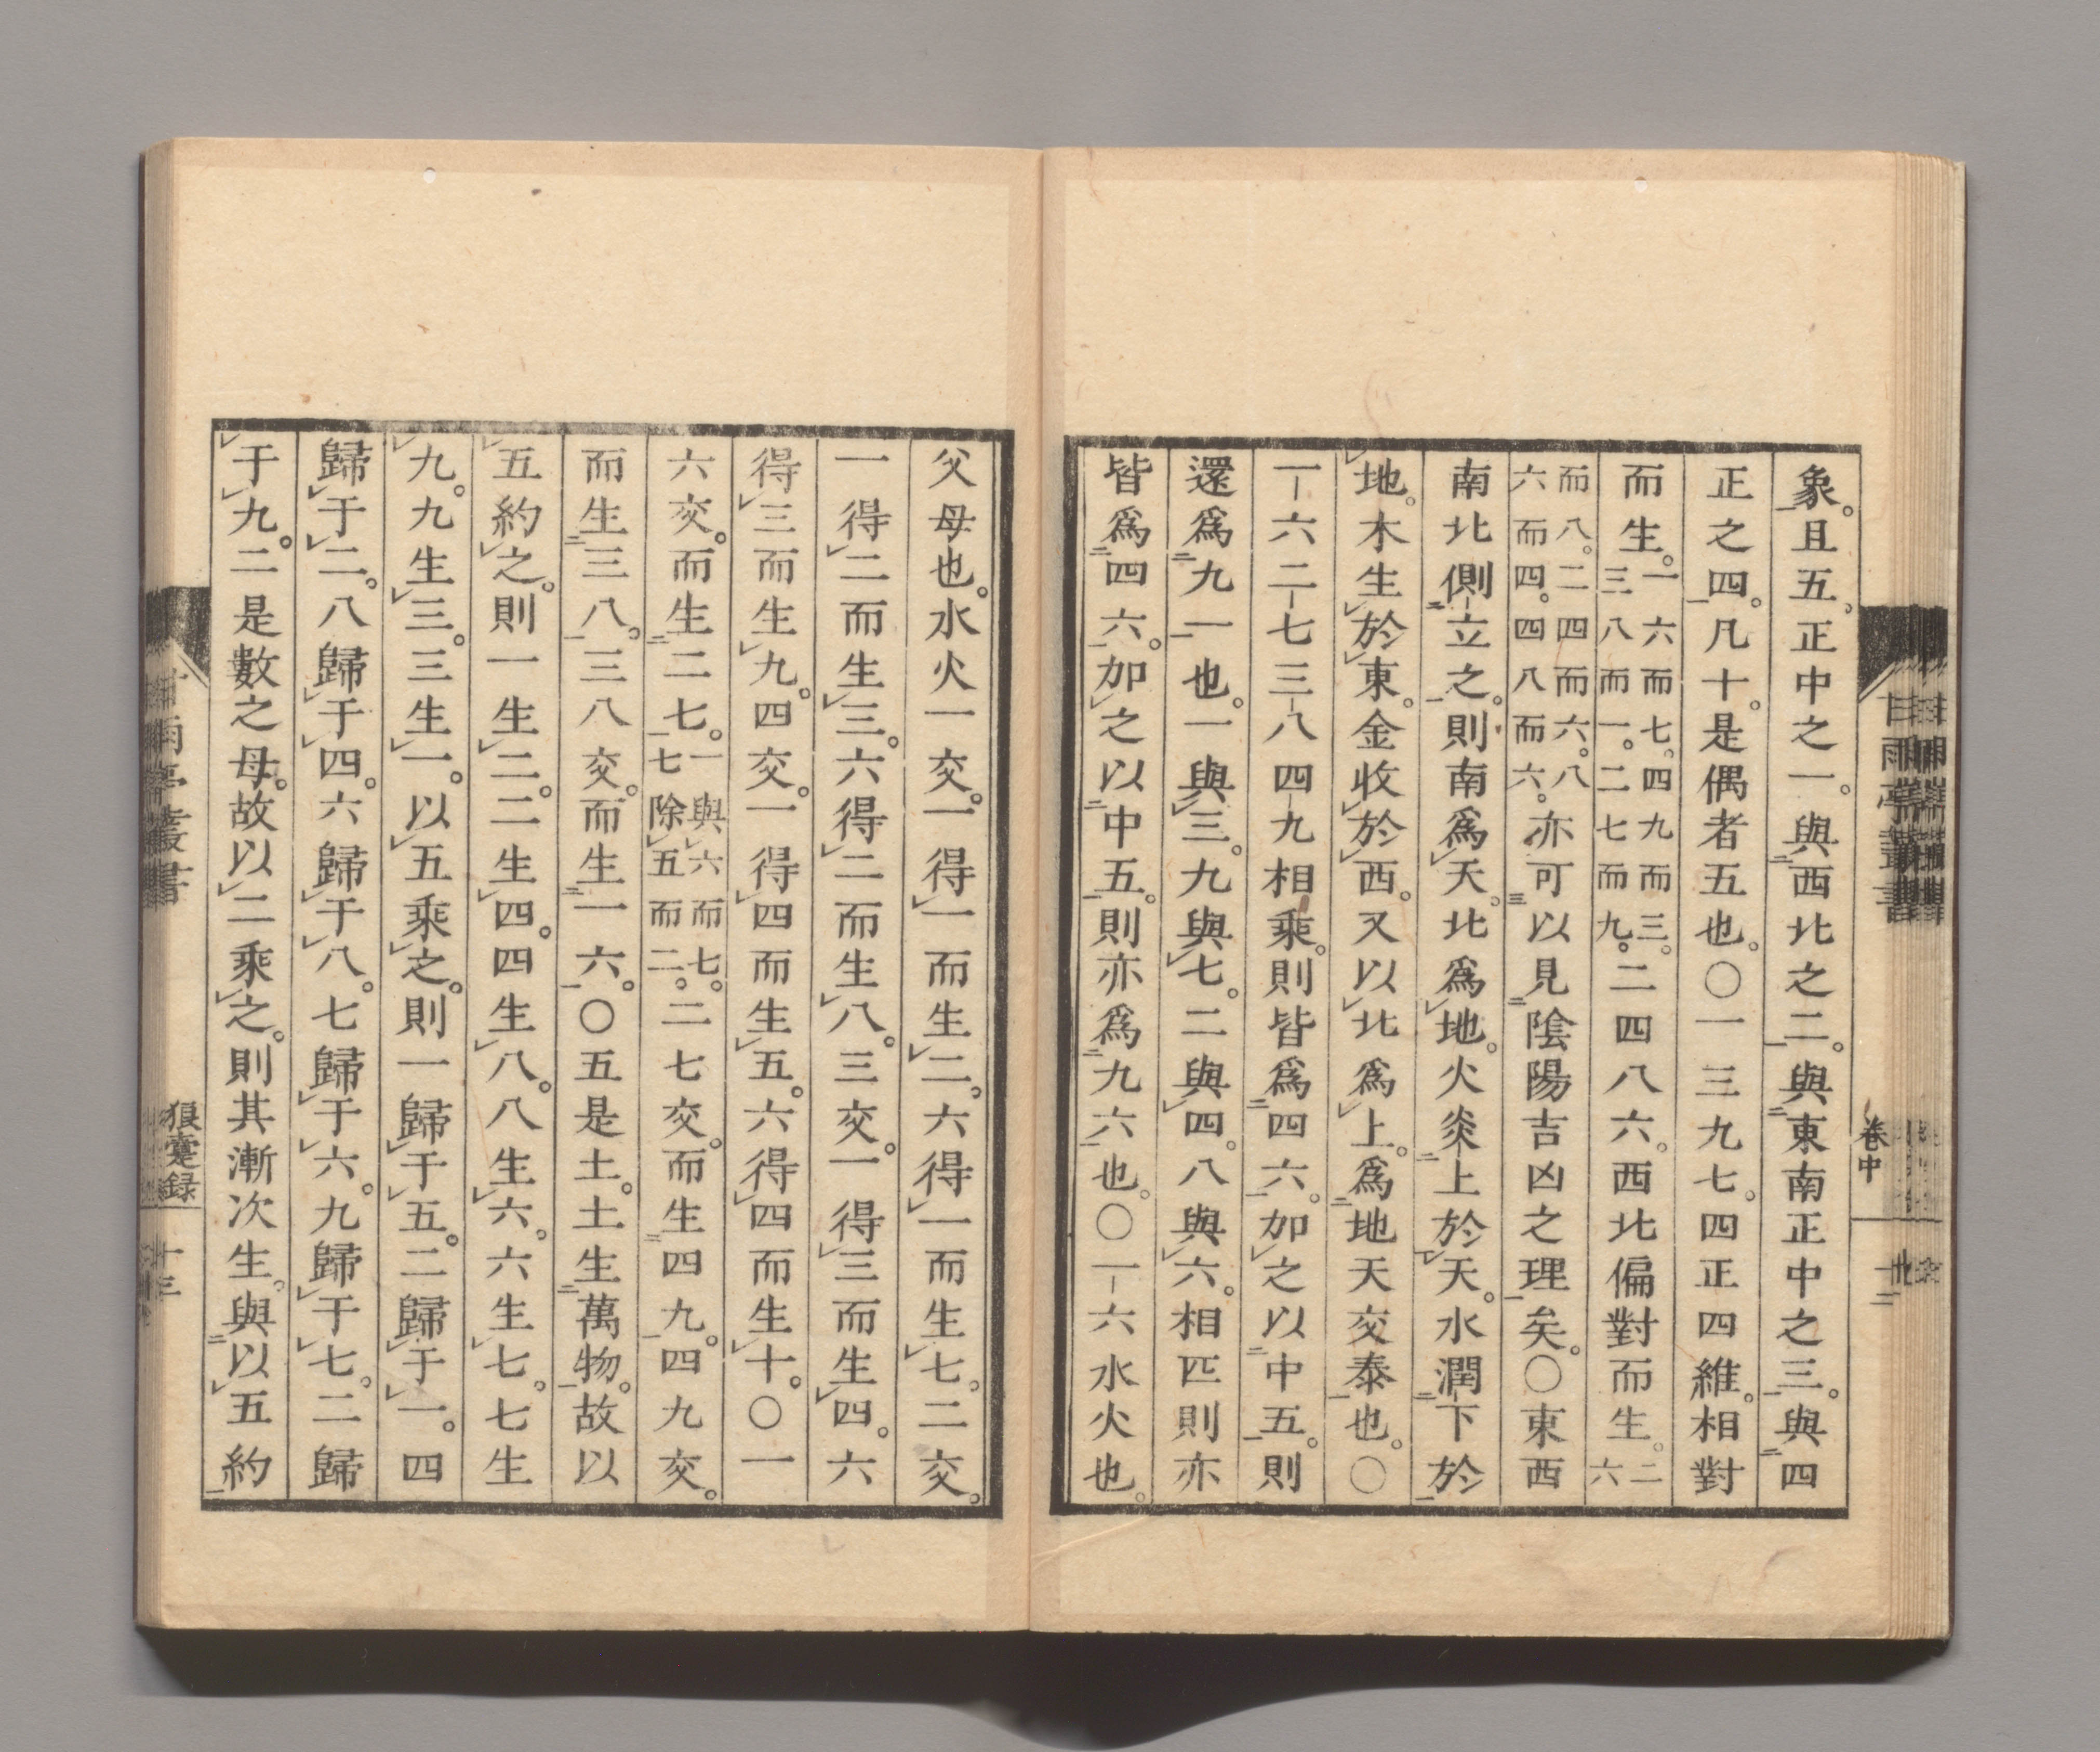 象。且五。正中之一。與西北之二。與東南正中之三。與四
正之四。凡十。是偶者五也。〇一三九七。四正四維。相對
而生。一六而七。四九而三。三八而一。二七而九。二四八六。西北偏對而生。二六
而八。二四而六。八六而四。四八而六。亦可以見陰陽吉凶之理矣。〇東西
南北側立之。則南爲天。北爲地。火炎上於天。水潤下於
地。木生於東。金收於西。又以北爲上。爲地天交泰也。〇
一六二七三八四九相乘。則皆爲四六。加之以中五。則
還爲九一也。一與三。九與七。二與四。八與六。相匹則亦
皆爲四六。加之以中五。則亦爲九六也。〇一六水火也。
卷中
父母也。水火一交。一得一而生二。六得一而生七。二交。
一得二而生三。六得二而生八。三交。一得三而生四。六
得三而生九。四交。一得四而生五。六得四而生十。〇一
六交。而生二七。一與六而七。七除五而二。二七交。而生四九。四九交。
而生三八。三八交。而生一六。〇五是土。土生萬物。故以
五約之。則一生二。二生四。四生八。八生六。六生七。七生
九。九生三。三生一。以五乘之。則一歸于五。二歸于一。四
歸于二。八歸于四。六歸于八。七歸于六。九歸于七。二歸
于九。二是數之母。故以二乘之。則其漸次生。與以五約
甘雨亭叢書
狼疐録
十三